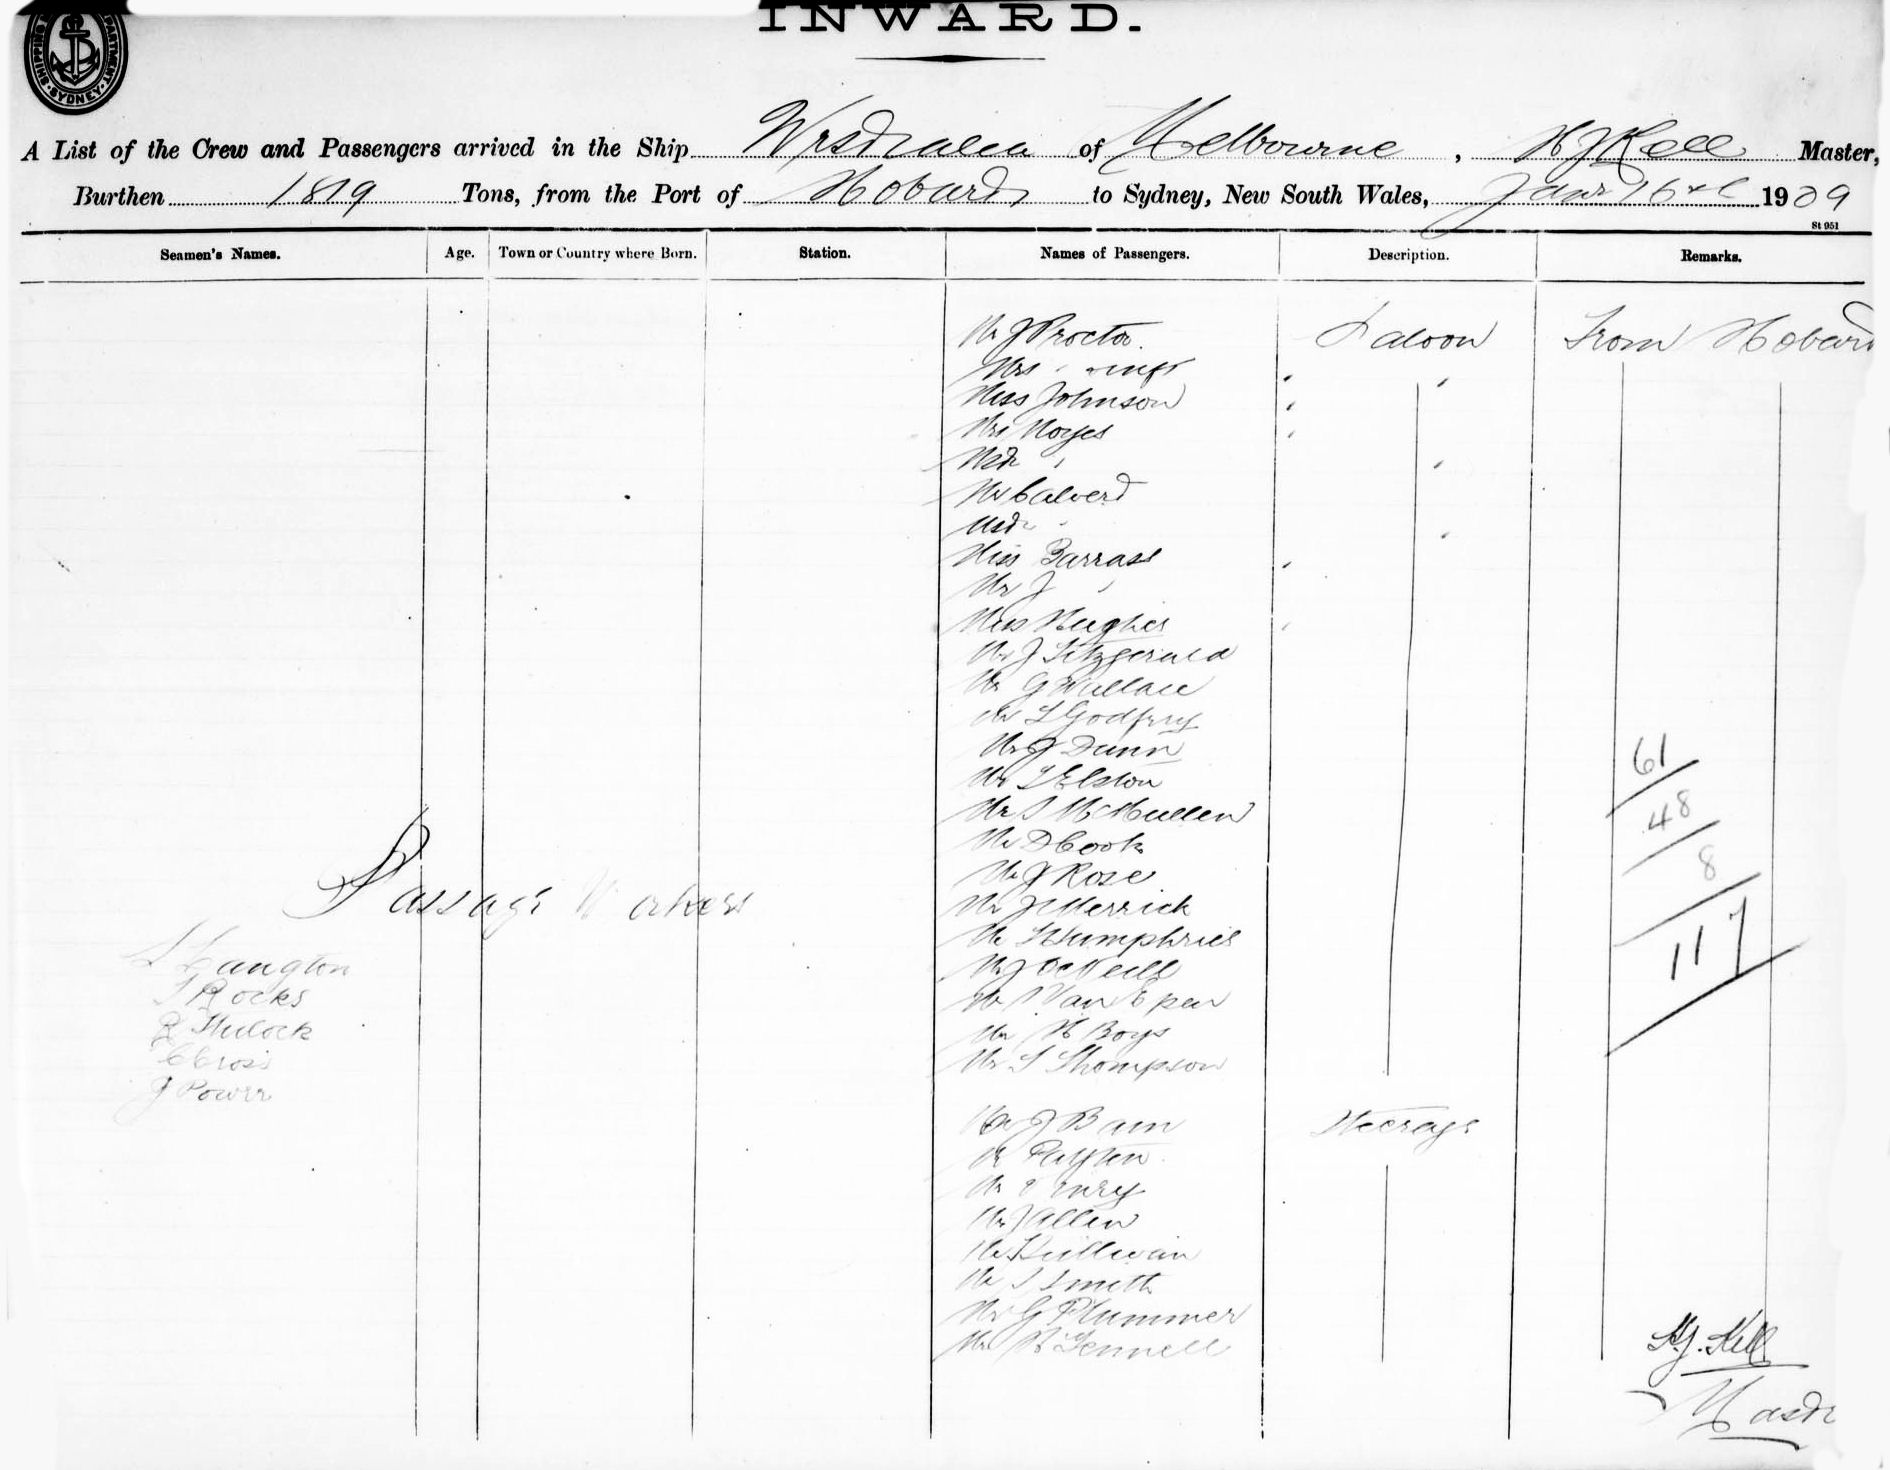 INWARD.
SHIPPING DEPARTMENT SYDNEY
A List of the Crew and Passengers arrived in the Ship Westralia of Melbourne, H J Kell Master,
Burthen 1819 Tons, from the Port of Hobart to Sydney, New South Wales, Jany 16th 1909
St 951
Seamen's Names. Age. Town or Country where Born. Station. Names of Passengers. Description. Remarks.
Mr J Proctor. Saloon From Hobart
Mrs
Miss Johnson
Mrs Noyes
Mstr "
Mr Calvert
Mstr "
Miss Barrass
Mr J "
Miss Hughes
Mr J Fitzgerald
Mr G Wallace
Mr L Godfrey
Mr J Dunn
Mr T Elston 61
Mr S McMullen 48
Mr D Cook
Mr J Rose 8
Passage Workers
Mr J Merrick
Mr T Humphries 117
L Langton
Mr J O'Neill
T Rocks
Mr Van Epen
R Hulock
Mr H Boys
C Cross
Mr S Thompson
J Power
Mr J Bain Steerage
Mr Payten
Mr
Mr J Allen
Mr Sullivan
Mr S Smith
Mr G Plummer
Mr H Fennell
H.J. Kell
Mastr